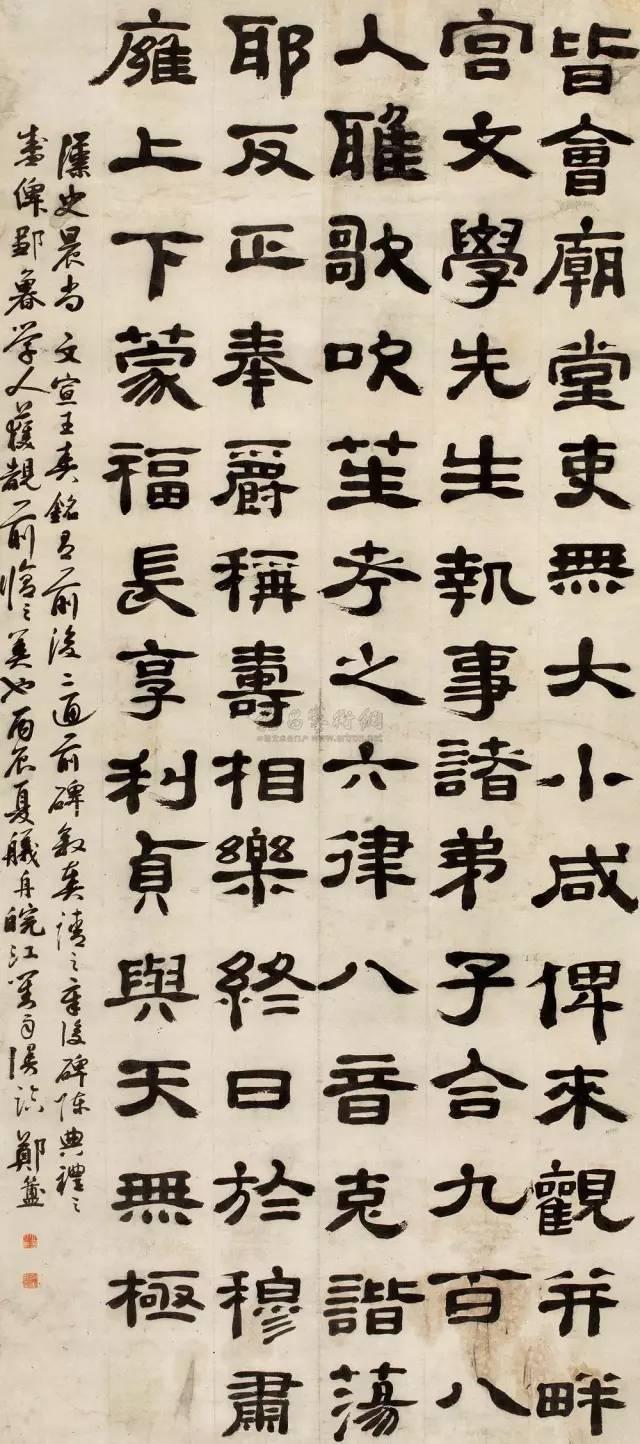 皆會廟堂吏無大小咸俾來觀并畔
宮文學先生執事諸弟子合九百八
人雅歌吹笙考之六律八音克諧蕩
耶反正奉爵稱壽相樂終日於穆肅
廱上下蒙福長享利貞與天無極
漢史晨 文宣王奏銘有前後二通前碑敘奏請之章後碑陳典禮之
俾鄒魯学人獲覩前 之美也丙辰夏艤舟皖江 鄭簠